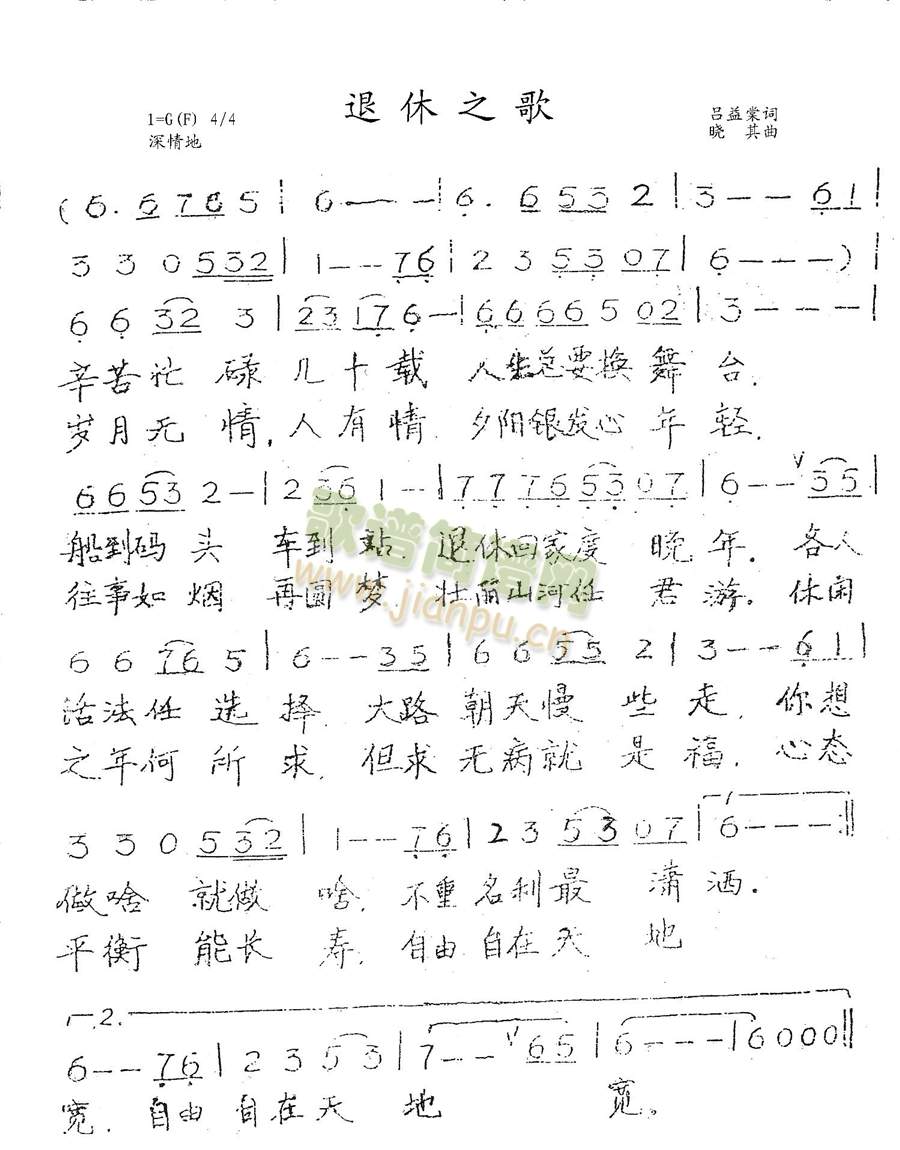 退休之歌
1=G(F) 4/4
深情地
吕益棠词
晓 其曲
(6. 6 7 6 5 | 6 — — | 6. 6 5 3 2 | 3 — — 6 1 |
3 3 0 5 3 2 | 1 — — 7 6 | 2 3 5 3 0 7 | 6 — — — ) |
6 6 3 2 3 | 2 3 1 7 6 — | 6 6 6 6 5 0 2 | 3 — — — |
辛苦忙 碌 几十载 人生总要换 舞 台.
岁月无 情, 人有情 夕阳银发心 年 轻.
6 6 5 3 2 — | 2 3 6 1 — — | 7 7 7 6 5 3 0 7 | 6 — — V 3 5 |
船到码 头 车到站. 退休回家度 晚 年. 各人
往事如 烟 再圆梦. 壮丽山河任 君 游. 休闲
6 6 7 6 5 | 6 — — 3 5 | 6 6 5 5 2 | 3 — — 6 1 |
活法任 选 择. 大路 朝天慢 些 走. 你想
之年何 所 求. 但求 无病就 是 福. 心态
3 3 0 5 3 2 | 1 — — 7 6 | 2 3 5 3 0 7 | 1 6 — — — :||
做啥 就做 啥. 不重 名利最 潇 洒.
平衡 能长 寿. 自由 自在天 地
2.
6 — — 7 6 | 2 3 5 3 | 7 — — V 6 5 | 6 — — — | 6 0 0 0 ||
宽. 自由 自在天 地 宽。
歌谱简谱网
www.jianpu.cn